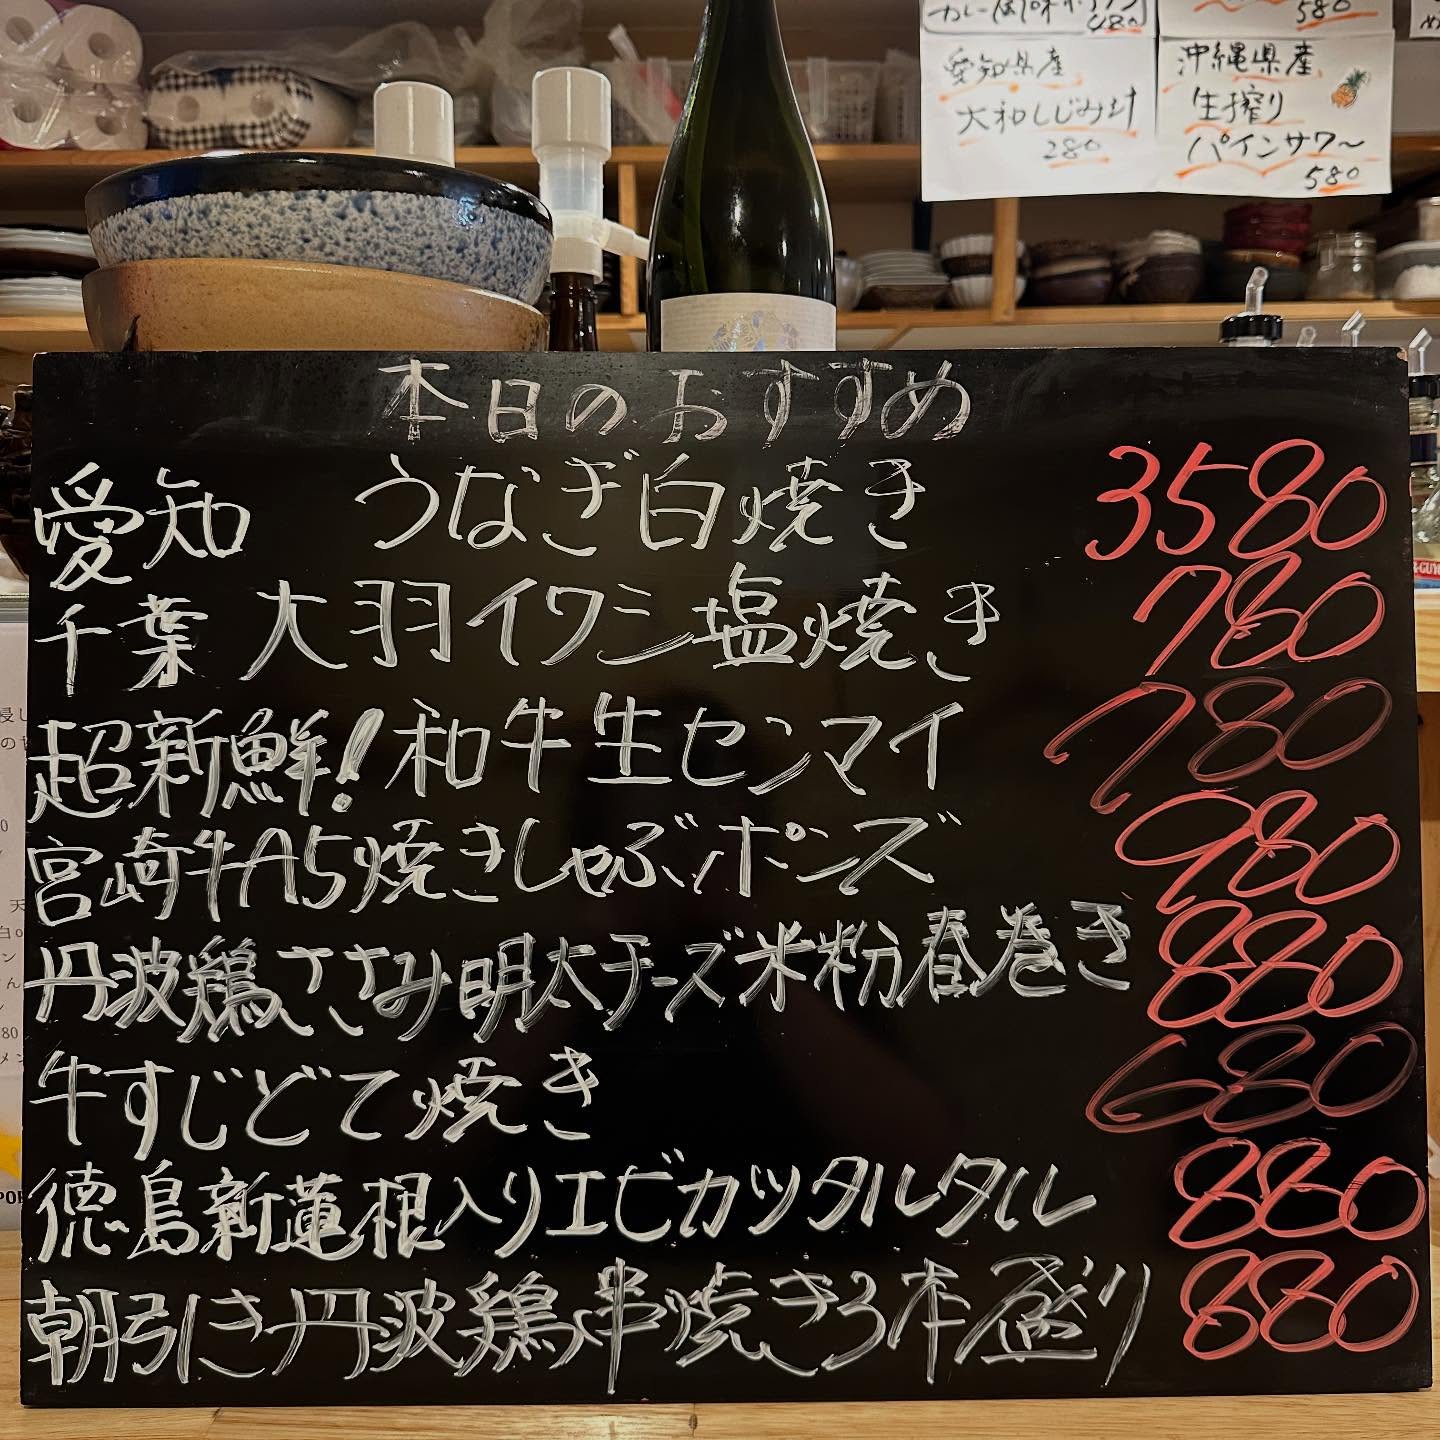 580
480
愛知県産
大和しじみ汁
280
沖縄県産
生搾り
パインサワ〜
580
本日のおすすめ
愛知 うなぎ白焼き 3580
千葉 大羽イワシ塩焼き 780
超新鮮!和牛生センマイ 780
宮崎牛A5焼きしゃぶポンズ 980
丹波鶏ささみ明太チーズ米粉春巻き 880
牛すじどて焼き 680
徳島新蓮根入りエビカツタルタル 880
朝引き丹波鶏串焼き3本盛り 880